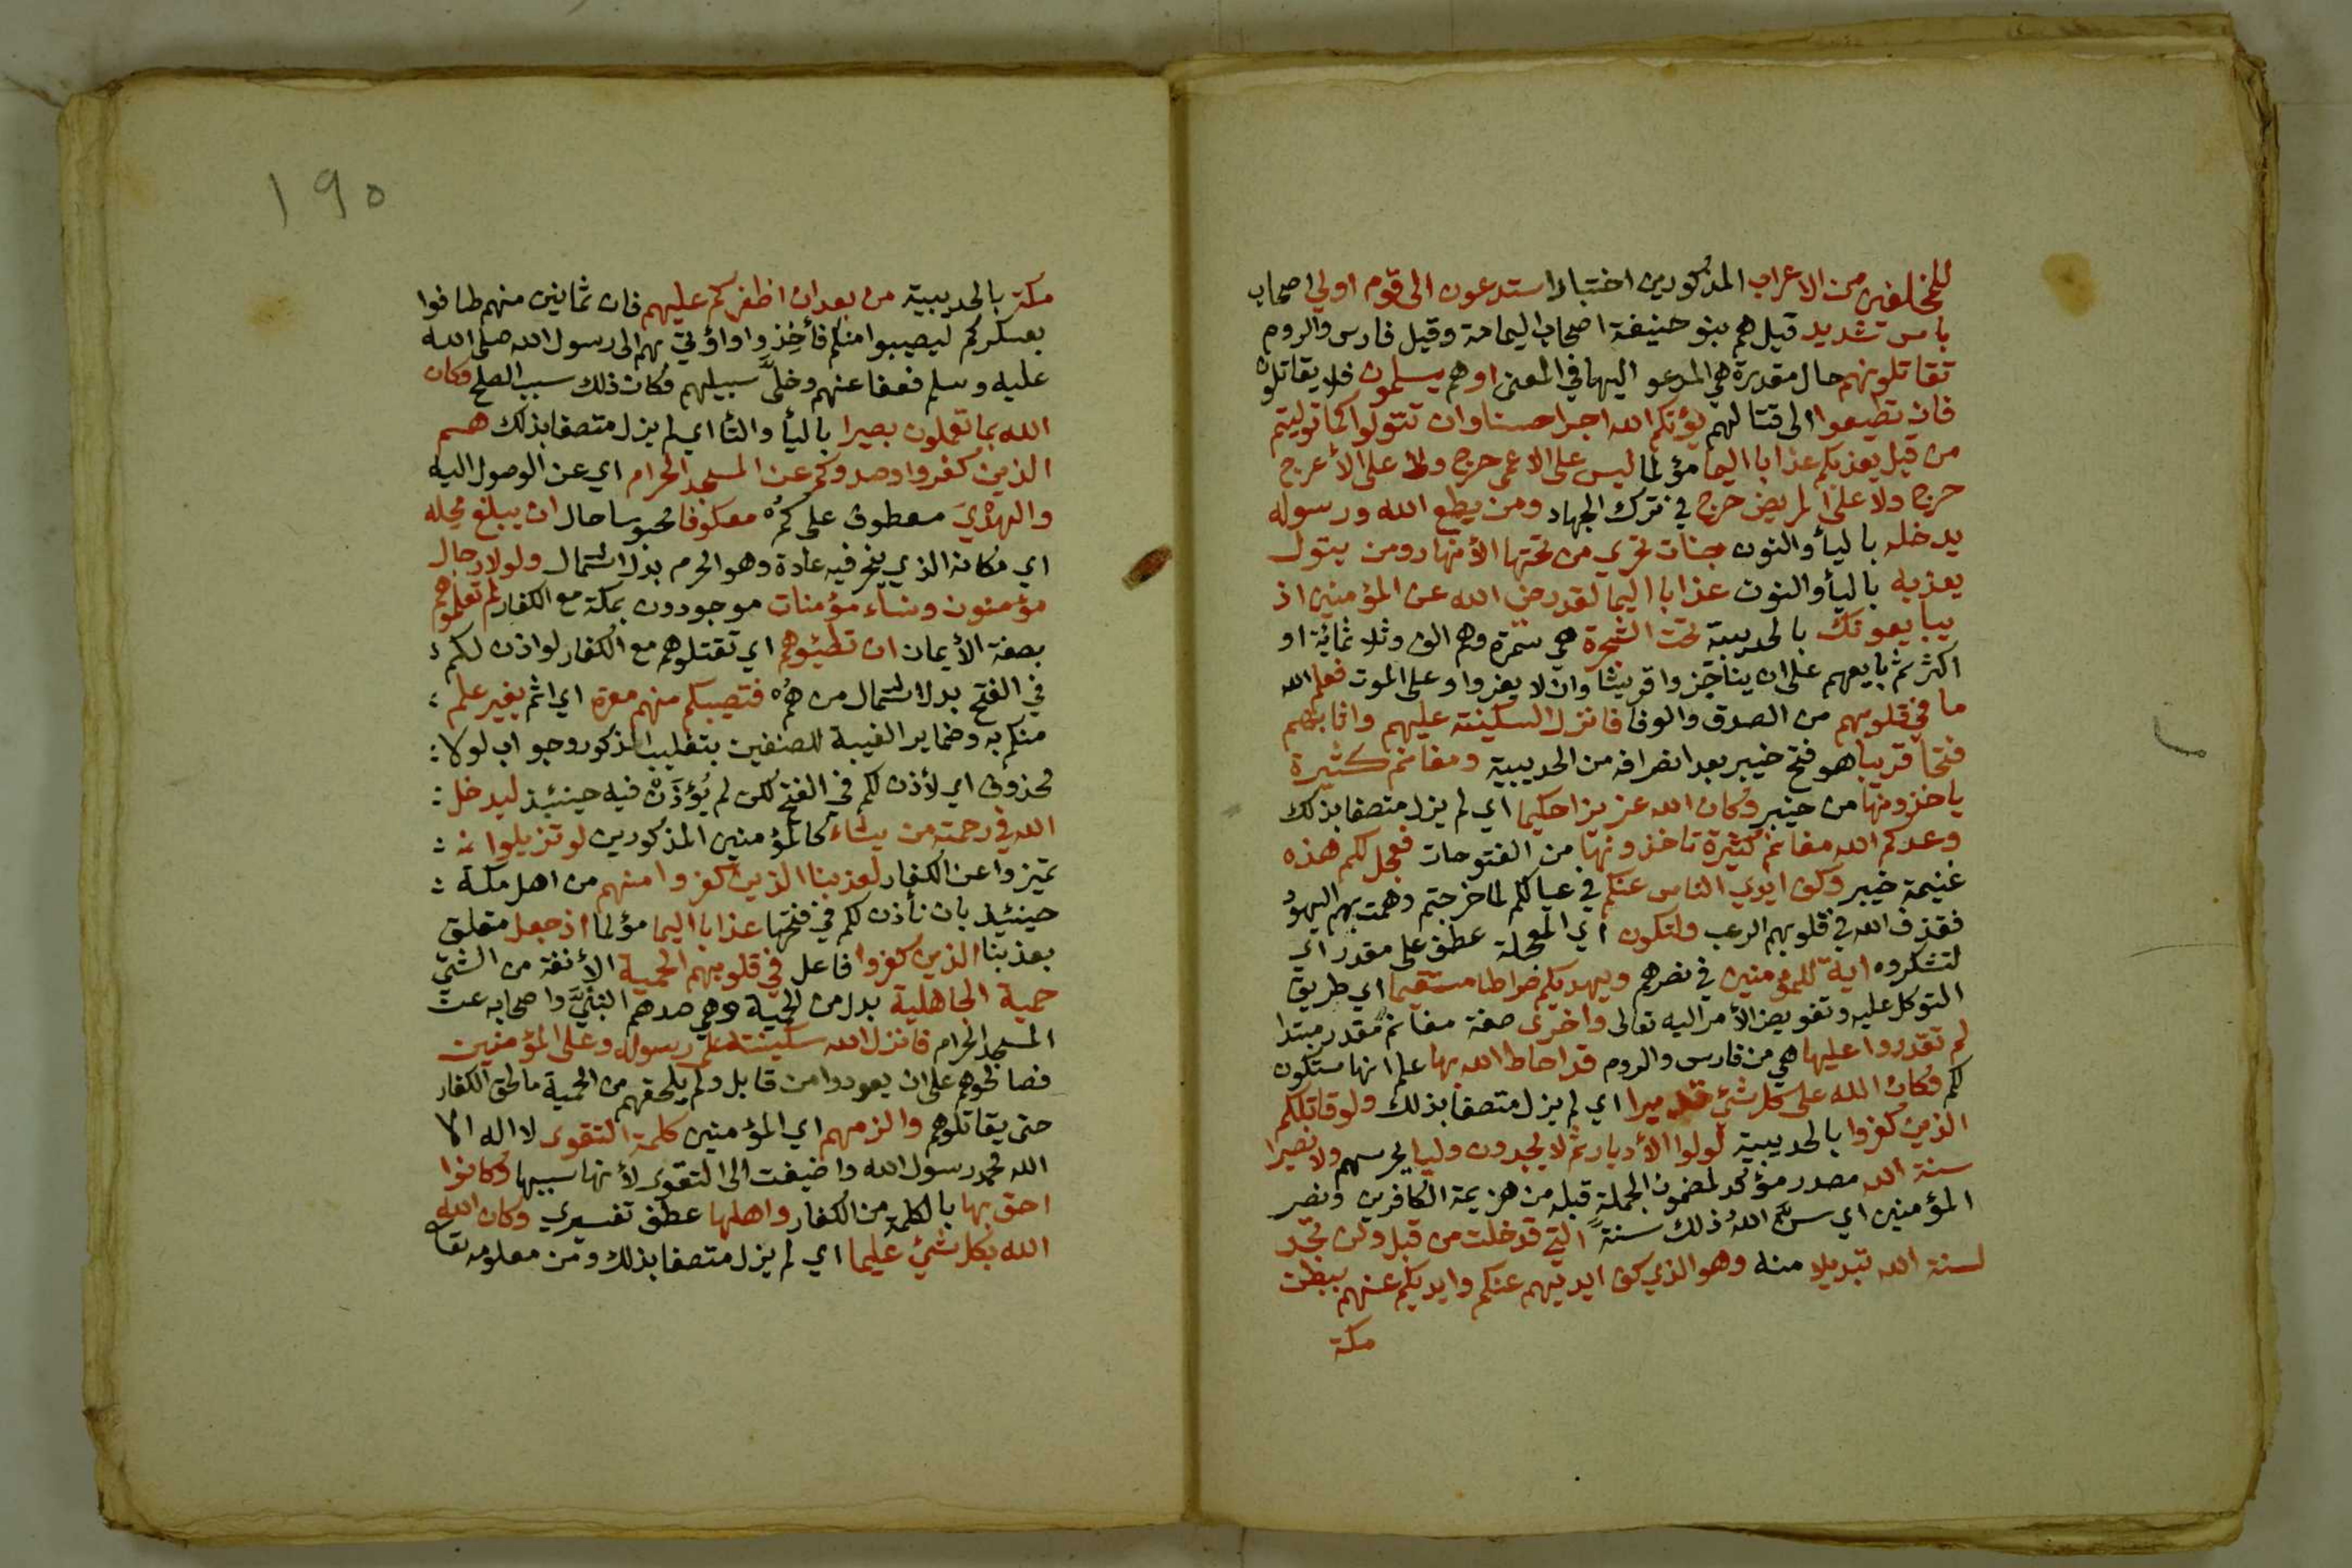 للمخلفين من الاعراب المذكورين اختبارا ستدعون الى قوم اولي اصحاب
باس شديد قيل هم بنو حنيفة اصحاب اليمامة وقيل فارس والروم
تقاتلونهم حال مقدرة هي المدعو اليها في المعنى او هم يسلمون فلا يقاتلون
فان تطيعوا الى قتالهم يؤتكم الله اجرا حسنا وان تتولوا كما توليتم
من قبل يعذبكم عذابا اليما مؤلما ليس على الاعمى حرج ولا على الأعرج
حرج ولا على المريض حرج في ترك الجهاد ومن يطع الله ورسوله
يدخله باليأ والنون جنات تجري من تحتها الأنهار ومن يتول
يعذبه باليأ والنون عذابا اليما لقد رضي الله عن المؤمنين اذ
يبايعونك بالحديبية تحت الشجرة هي سمرة وهم الف وثلاثمائة او
اكثر ثم بايعهم على ان يناجزوا قريشا وان لا يفروا وعلى الموت فعلم الله
ما في قلوبهم من الصدق والوفا فانزل السكينة عليهم واثابهم
فتحا قريبا هو فتح خيبر بعد انصرافه من الحديبية ومغانم كثيرة
ياخذونها من خيبر وكان الله عزيزا حكيما اي لم يزل متصفا بذلك
وعدكم الله مغانم كثيرة تاخذونها من الفتوحات فعجل لكم هذه
غنيمة خيبر وكف ايدي الناس عنكم في عيالكم لما خرجتم وهمت بهم اليهود
فقذف الله في قلوبهم الرعب ولتكون اي المعجلة عطف على مقدر اي
لتشكروه اية للمؤمنين في نصرهم ويهديكم صراطا مستقيما اي طريق
التوكل عليه وتفويض الأمر اليه تعالى واخرى صفة مغانم مقدر مبتدا
لم تقدروا عليها هي من فارس والروم قد احاط الله بها علم انها ستكون
لكم وكان الله على كل شئ قديرا اي لم يزل متصفا بذلك ولو قاتلكم
الذين كفروا بالحديبية لولوا الأدبار ثم لا يجدون وليا يحرسهم ولا نصيرا
سنة الله مصدر مؤكد لمضمون الجملة قبله من هزيمة الكافرين ونصر
المؤمنين اي سنّ اللهُ ذلك سنةً التي قد خلت من قبل ولن تجد
لسنة الله تبديلا منه وهو الذي كف ايديهم عنكم وايديكم عنهم ببطن
مكة
١٩٥
مكة بالحديبية من بعد ان اظفركم عليهم فان ثمانين منهم طافوا
بعسكركم ليصيبوا منكم فأُخِذوا واؤتي بهم الى رسول الله صلى الله
عليه وسلم فعفا عنهم وخلى سبيلهم فكان ذلك سبب الصلح وكان
الله بما تعملون بصيرا باليأ والتأ اي لم يزل متصفا بذلك هم
الذين كفروا وصدوكم عن المسجد الحرام اي عن الوصول اليه
والهدْيَ معطوف على كُمْ معكوفا محبوسا حال ان يبلغ محِله
اي مكانه الذي ينحر فيه عادة وهو الحرم بدل اشتمال ولولا رجال
مؤمنون ونساء مؤمنات موجودون بمكة مع الكفار لم تعلموهم
بصفة الأيمان ان تطئوهم اي تقتلوهم مع الكفار لو اذن لكم
في الفتح بدل اشتمال من هُمْ فتصيبكم منهم معرة اي اثم بغير علم
منكم به وضماير الغيبة للصنفين بتغليب الذكور وجواب لولا
محذوف اي لأذن لكم في الفتح لكن لم يُؤذَنْ فيه حينئذ ليدخل
الله في رحمته من يشاء كالمؤمنين المذكورين لو تزيلوا
تميزوا عن الكفار لعذبنا الذين كفروا منهم من اهل مكة
حينئيذ بان نأذن لكم في فتحها عذابا اليما مؤلما اذ جعل متعلق
بعذبنا الذين كفروا فاعل في قلوبهم الحمية الأنفة من الشئ
حمية الجاهلية بدل من الحمية وهي صدهم النبيَّ واصحابه عن
المسجد الحرام فانزل الله سكينته على رسوله وعلى المؤمنين
فصالحوهم على ان يعودوا من قابل ولم يلحقهم من الحمية ما لحق الكفار
حتى يقاتلوهم والزمهم اي المؤمنين كلمة التقوى لا اله الا
الله محمد رسول الله واضيفت الى التقوى لأنها سببها وكانوا
احق بها بالكلمة من الكفار واهلها عطف تفسيري وكان الله
الله بكل شئ عليما اي لم يزل متصفا بذلك ومن معلومه تعا